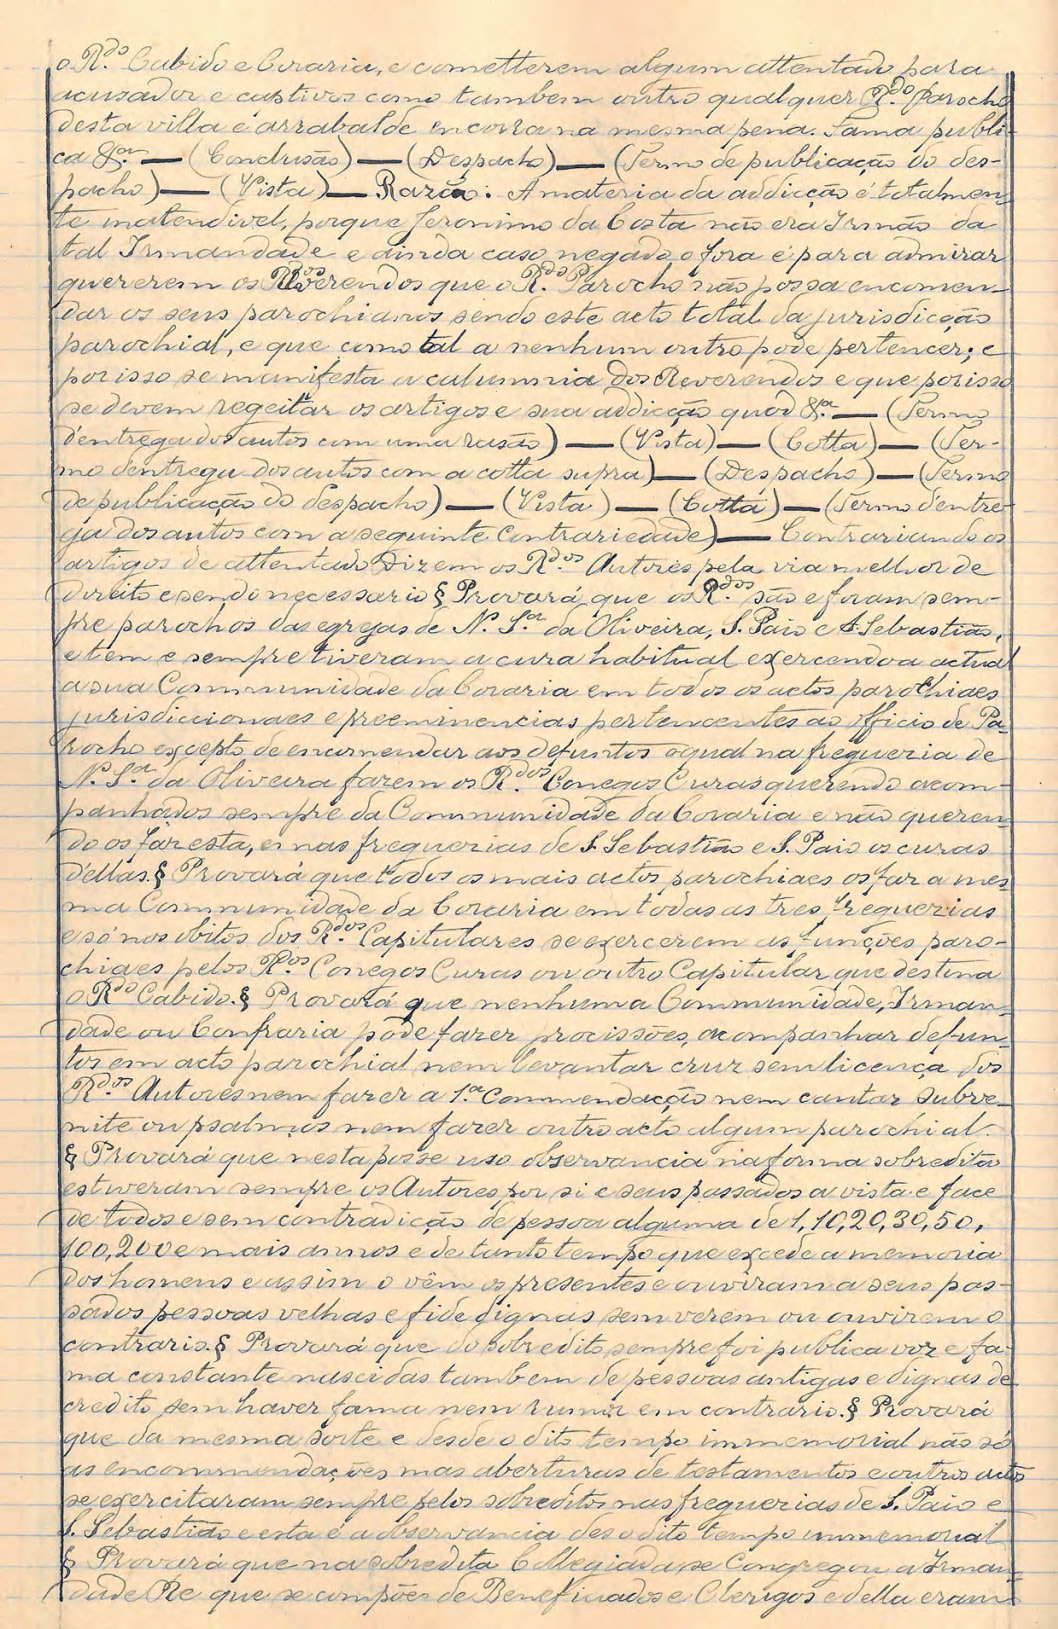 o R.do Cabido e Coraria, e cometterem algum attentado para
acusador e captivos como tambem outro qualquer R.do Parocho
desta villa e arrabalde encorra na mesma pena. Fama publi-
ca &.a — (Conclusão) — (Despacho) — (Termo de publicação do des-
pacho) — (Vista) — Razão: A materia da addicção é totalmen-
te inatendivel, porque Jeronimo da Costa não era Irmão da
tal Irmandade e ainda caso negado o fora é para admirar
quererem os Reverendos que o R.do Parocho não possa encomen-
dar os seus parochianos sendo este acto total da jurisdicção
parochial, e que como tal a nenhum outro pode pertencer; e
por isso se manifesta a calumnia dos Reverendos e que por isso
se devem regeitar os artigos e sua addicção quod &.a — (Termo
d'entrega dos autos com uma rasão) — (Vista) — (Cotta) — (Ter-
mo dentrega dos autos com a cotta supra) — (Despacho) — (Termo
de publicação do despacho) — (Vista) — (Cotta) — (Termo dentre-
ga dos autos com a seguinte contrariedade) — Contrariando os
artigos de attentado Dizem os R.dos Autores pela via melhor de
direito e sendo necessario § Provará que os R.dos são e foram sem-
pre parochos das egrejas de N. S.ra da Oliveira, S. Paio e S. Sebastião,
e tem e sempre tiveram a cura habitual exercendo a actual
a sua Communidade da Coraria em todos os actos parochiaes
jurisdiccionaes e preeminencias pertencentes ao officio de Pa-
rocho excepto de encomendar aos defuntos o qual na freguezia de
N. S.ra da Oliveira fazem os R.dos Conegos Curas querendo acom-
panhados sempre da Communidade da Coraria e não queren-
do os faz esta, e nas freguezias de S. Sebastião e S. Paio os curas
d'ellas. § Provará que todos os mais actos parochiaes os faz a mes-
ma Communidade da Coraria em todas as tres freguezias
e só nos obitos dos R.dos Capitulares se exercerem as funções paro-
chiaes pelos R.dos Conegos Curas ou outro Capitular que destina
o R.do Cabido. § Provará que nenhuma Communidade, Irman-
dade ou Confraria pode fazer procissões, acompanhar defun-
tos em acto parochial nem levantar cruz sem licença dos
R.dos Autores nem fazer a 1.a Commendacção nem cantar subve-
nite ou psalmos nem fazer outro acto algum parochial.
§ Provará que nesta posse uso observancia na forma sobredita
estiveram sempre os Autores por si e seus passados a vista e face
de todos e sem contradicção de pessoa alguma de 1, 10, 20, 30, 50,
100, 200 e mais annos e de tanto tempo que excede a memoria
dos homens e assim o vêm os presentes e ouviram a seus pas-
sados pessoas velhas e fidedignas sem verem ou ouvirem o
contrario. § Provará que do sobredito sempre foi publica voz e fa-
ma constante nascidas tambem de pessoas antigas e dignas de
credito sem haver fama nem rumor em contrario. § Provará
que da mesma sorte e desde o dito tempo immemorial não só
as encommendações mas aberturas de testamentos e outros actos
se exercitaram sempre pelos sobreditos nas freguezias de S. Paio e
S. Sebastião e esta é a observancia des o dito tempo immemorial
§ Provará que na sobredita Collegiada se Congregou a Irman-
dade Re que se compões de Beneficiados e Clerigos e della eram